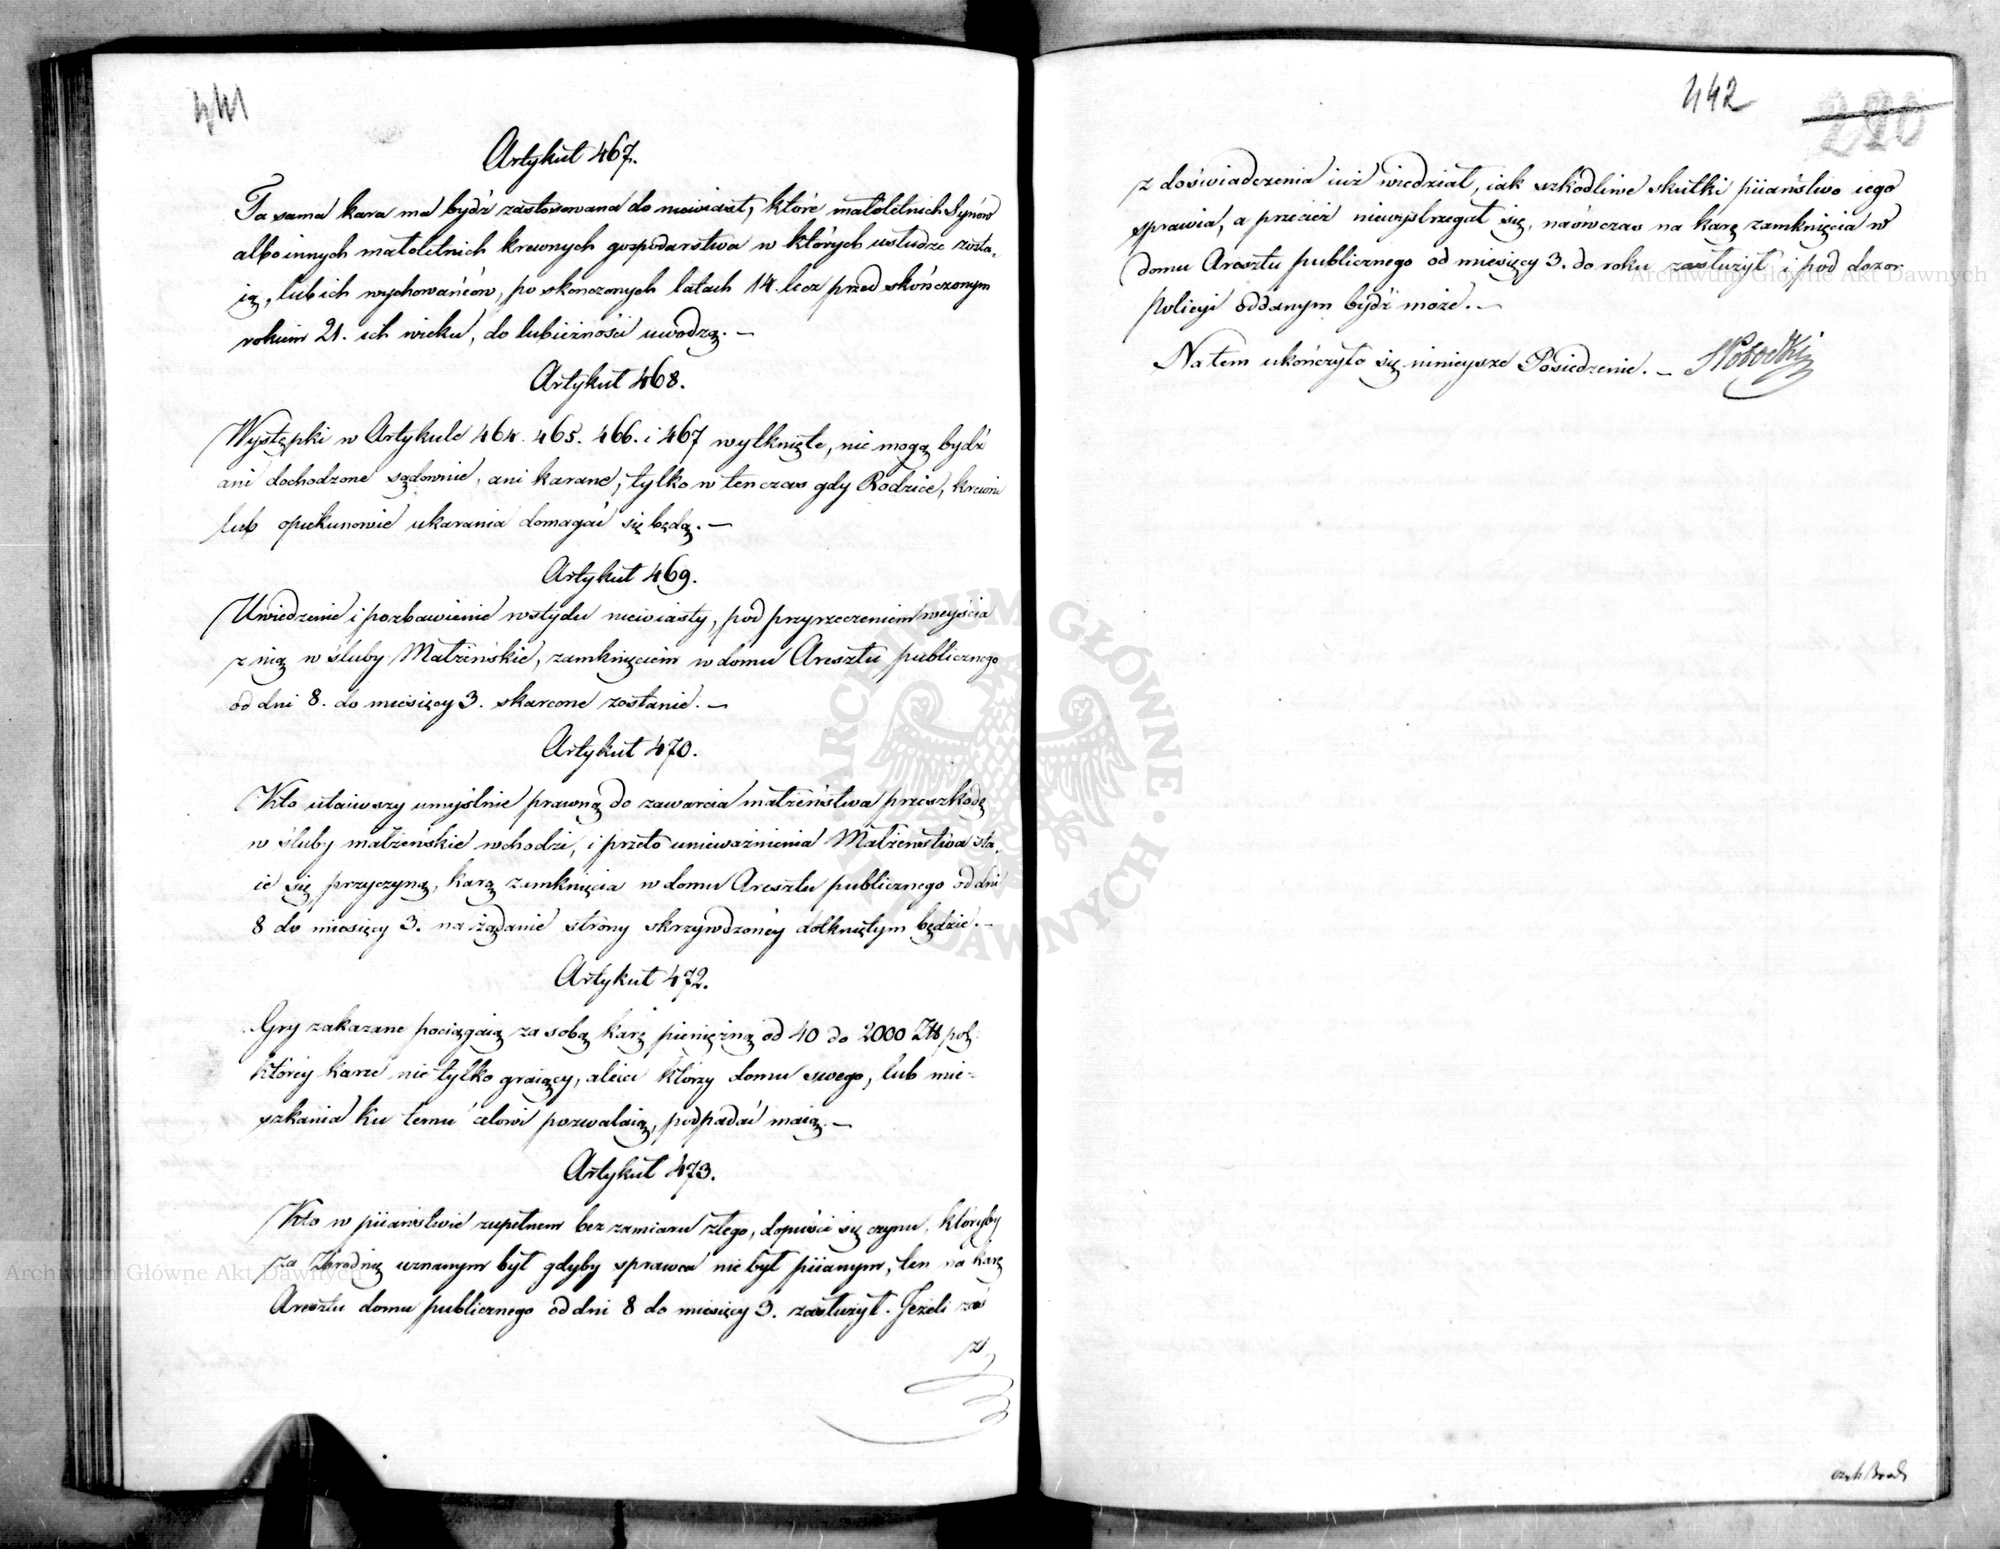 441
Artykuł 467.
Ta sama kara ma bydź zastosowana do niewiast, które małoletnich Synów
albo innych małoletnich krewnych gospodarstwa w których usłudze zosta-
ią, lub ich wychowańców, po skończonych latach 14. lecz przed skończonym
rokiem 21. ich wieku, do lubieżności uwodzą. —
Artykuł 468.
Występki w Artykule 464. 465. 466. i 467 wytknięte, nie mogą bydź
ani dochodzone sądownie, ani karane, tylko w ten czas gdy Rodzice, krewni
lub opiekunowie ukarania domagać się będą. —
Artykuł 469.
Uwiedzenie i pozbawienie wstydu niewiasty, pod przyrzeczeniem weyścia
z nią w śluby Małżeńskie, zamknięciem w domu Aresztu publicznego
od dni 8. do miesięcy 3. skarcone zostanie. —
Artykuł 470.
Kto utaiwszy umyślnie prawną do zawarcia małżeństwa przeszkodę
w śluby małżeńskie wchodzi, i przeto unieważnienia Małżeństwa sta-
ie się przyczyną, karą zamknięcia w domu Aresztu publicznego od dni
8 do miesięcy 3. na żądanie strony skrzywdzoney dotkniętym będzie. —
Artykuł 472.
Gry zakazane pociągaią za sobą karę pieniężną od 40 do 2000 Złł pol:
którey karze nie tylko graiący, ale i ci którzy domu swego, lub mie-
szkania ku temu celowi pozwalaią, podpadać maią. —
Artykuł 473.
Kto w piiaństwie zupełnem bez zamiaru złego, dopuści się czynu, któryby
za Zbrodnię uznanym był gdyby sprawca nie był piianym, ten na karę
Aresztu domu publicznego od dni 8 do miesięcy 3. zasłużył. Jeżeli zaś
z
442
220
z doświadczenia iuż wiedział, iak szkodliwe skutki piiaństwo iego
sprawia, a przecież niewystrzegał się, naówczas na karę zamknięcia w
domu Aresztu publicznego od miesięcy 3. do roku zasłużył i pod dozor
policyi oddanym bydź może. —
Na tem ukończyło się ninieysze Posiedzenie. —
Archiwum Główne Akt Dawnych
Archiwum Główne Akt Dawnych
ARCHIWUM GŁÓWNE AKT DAWNYCH